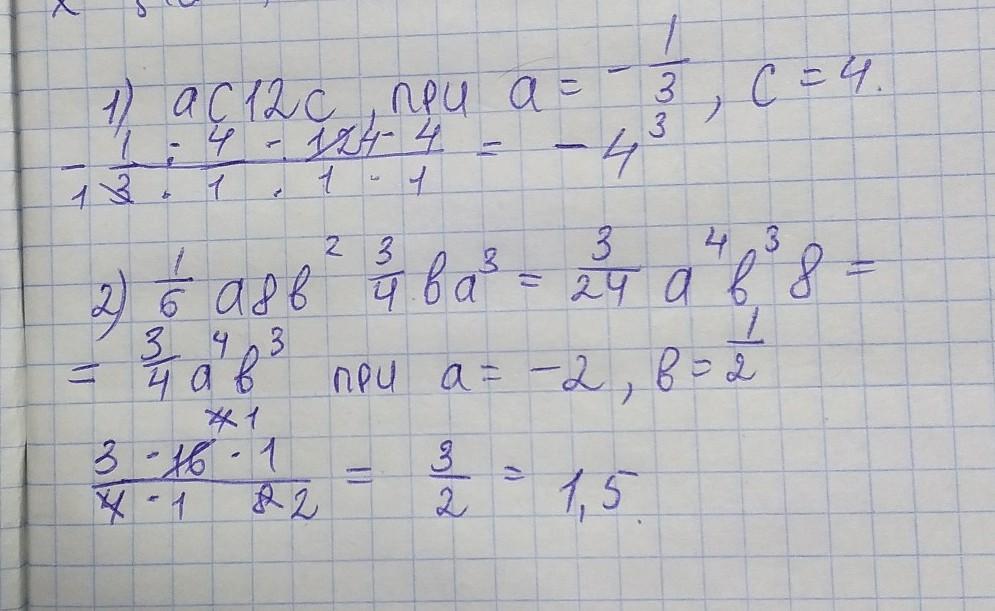 1) ac12c, при a = -1/3, c = 4.
-1/3 · 4 · 12 · 4 / 1 · 1 · 1 = -4³
2) 1/6 a8в² 3/4 ва³ = 3/24 a⁴в³ 8 =
= 3/4 a⁴в³ при a = -2, в = 1/2
3 · 16 · 1 / 4 · 1 8 2 = 3/2 = 1,5.